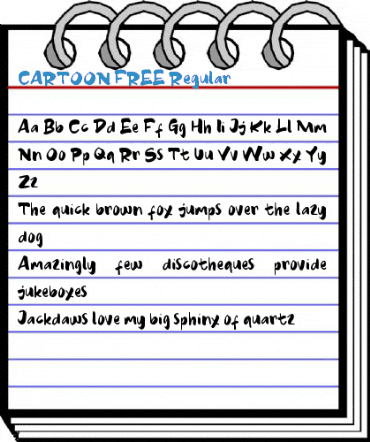 CARTOON FREE Regular
Aa Bb Cc Dd Ee Ff Gg Hh Ii Jj Kk Ll Mm
Nn Oo Pp Qq Rr Ss Tt Uu Vv Ww Xx Yy
Zz
The quick brown fox jumps over the lazy
dog
Amazingly few discotheques provide
jukeboxes
Jackdaws love my big sphinx of quartz